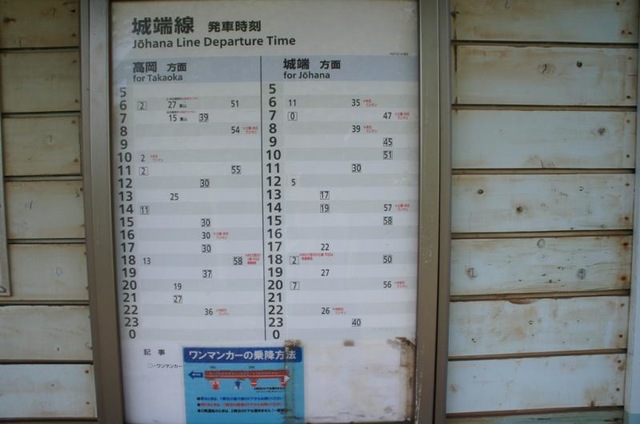 城端線 発車時刻
Jōhana Line Departure Time
高岡 方面
for Takaoka
5
6 2 27 51
7 15 39
8 54
9
10 2
11 2 55
12 30
13 25
14 11
15 30
16 30
17 30
18 13 58
19 37
20 19
21 27
22 36
23
0
城端 方面
for Jōhana
5
6 11 35
7 0 47
8 39
9 45
10 51
11 30
12 5
13 17
14 19 57
15 58
16
17 22
18 2 50
19 27
20 7 56
21
22 26
23 40
0
記 事
ワンマンカーの乗降方法